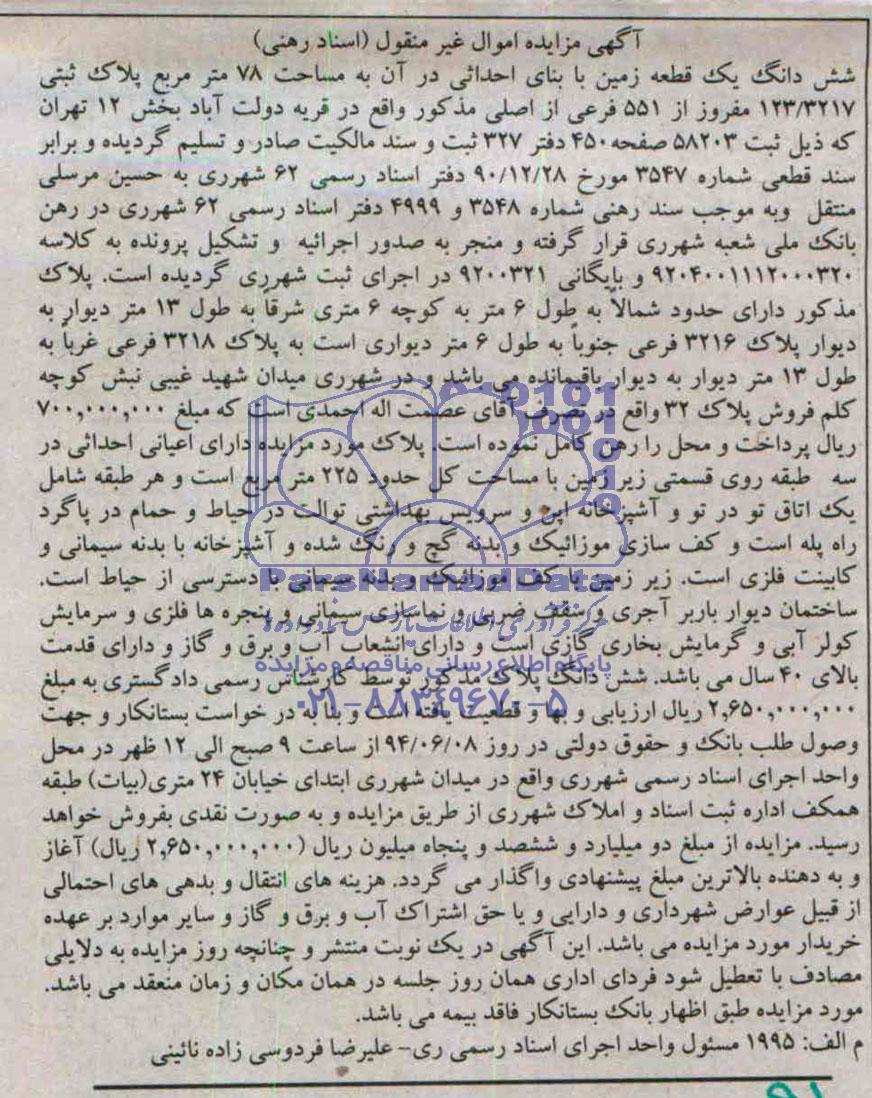 آگهی مزایده اموال غیر منقول (اسناد رهنی)
شش دانگ یک قطعه زمین با بنای احداثی در آن به مساحت ۷۸ متر مربع پلاک ثبتی
۱۲۳/۳۲۱۷ مفروز از ۵۵۱ فرعی از اصلی مذکور واقع در قریه دولت آباد بخش ۱۲ تهران
که ذیل ثبت ۵۸۲۰۳ صفحه ۴۵۰ دفتر ۳۲۷ ثبت و سند مالکیت صادر و تسلیم گردیده و برابر
سند قطعی شماره ۳۵۴۷ مورخ ۹۰/۱۲/۲۸ دفتر اسناد رسمی ۶۲ شهرری به حسین مرسلی
منتقل وبه موجب سند رهنی شماره ۳۵۴۸ و ۴۹۹۹ دفتر اسناد رسمی ۶۲ شهرری در رهن
بانک ملی شعبه شهرری قرار گرفته و منجر به صدور اجرائیه و تشکیل پرونده به کلاسه
۹۲۰۴۰۰۱۱۱۲۰۰۰۳۲۰ و بایگانی ۹۲۰۰۳۲۱ در اجرای ثبت شهرری گردیده است. پلاک
مذکور دارای حدود شمالاً به طول ۶ متر به کوچه ۶ متری شرقاً به طول ۱۳ متر دیوار به
دیوار پلاک ۳۲۱۶ فرعی جنوباً به طول ۶ متر دیواری است به پلاک ۳۲۱۸ فرعی غرباً به
طول ۱۳ متر دیوار به دیوار باقیمانده می باشد و در شهرری میدان شهید غیبی نبش کوچه
کلم فروش پلاک ۳۲ واقع در تصرف آقای عصمت اله احمدی است که مبلغ ۷۰۰,۰۰۰,۰۰۰
ریال پرداخت و محل را رهن کامل نموده است. پلاک مورد مزایده دارای اعیانی احداثی در
سه طبقه روی قسمتی زیر زمین با مساحت کل حدود ۲۲۵ متر مربع است و هر طبقه شامل
یک اتاق تو در تو و آشپزخانه اپن و سرویس بهداشتی توالت در حیاط و حمام در پاگرد
راه پله است و کف سازی موزائیک و بدنه گچ و رنگ شده و آشپزخانه با بدنه سیمانی و
کابینت فلزی است. زیر زمین با کف موزائیک و بدنه سیمانی با دسترسی از حیاط است.
ساختمان دیوار باربر آجری و سقف ضربی و نماسازی سیمانی و پنجره ها فلزی و سرمایش
کولر آبی و گرمایش بخاری گازی است و دارای انشعاب آب و برق و گاز و دارای قدمت
بالای ۴۰ سال می باشد. شش دانگ پلاک مذکور توسط کارشناس رسمی دادگستری به مبلغ
۲,۶۵۰,۰۰۰,۰۰۰ ریال ارزیابی و بها و قطعیت یافته است و بنا به در خواست بستانکار و جهت
وصول طلب بانک و حقوق دولتی در روز ۹۴/۰۶/۰۸ از ساعت ۹ صبح الی ۱۲ ظهر در محل
واحد اجرای اسناد رسمی شهرری واقع در میدان شهرری ابتدای خیابان ۲۴ متری(بیات) طبقه
همکف اداره ثبت اسناد و املاک شهرری از طریق مزایده و به صورت نقدی بفروش خواهد
رسید. مزایده از مبلغ دو میلیارد و ششصد و پنجاه میلیون ریال (۲,۶۵۰,۰۰۰,۰۰۰ ریال) آغاز
و به دهنده بالاترین مبلغ پیشنهادی واگذار می گردد. هزینه های انتقال و بدهی های احتمالی
از قبیل عوارض شهرداری و دارایی و یا حق اشتراک آب و برق و گاز و سایر موارد بر عهده
خریدار مورد مزایده می باشد. این آگهی در یک نوبت منتشر و چنانچه روز مزایده به دلایلی
مصادف با تعطیل شود فردای اداری همان روز جلسه در همان مکان و زمان منعقد می باشد.
مورد مزایده طبق اظهار بانک بستانکار فاقد بیمه می باشد.
م الف: ۱۹۹۵ مسئول واحد اجرای اسناد رسمی ری- علیرضا فردوسی زاده نائینی
ParsNamadData
پایگاه اطلاع رسانی مناقصه و مزایده
۰۲۱-۸۸۳۴۹۶۷۰-۵